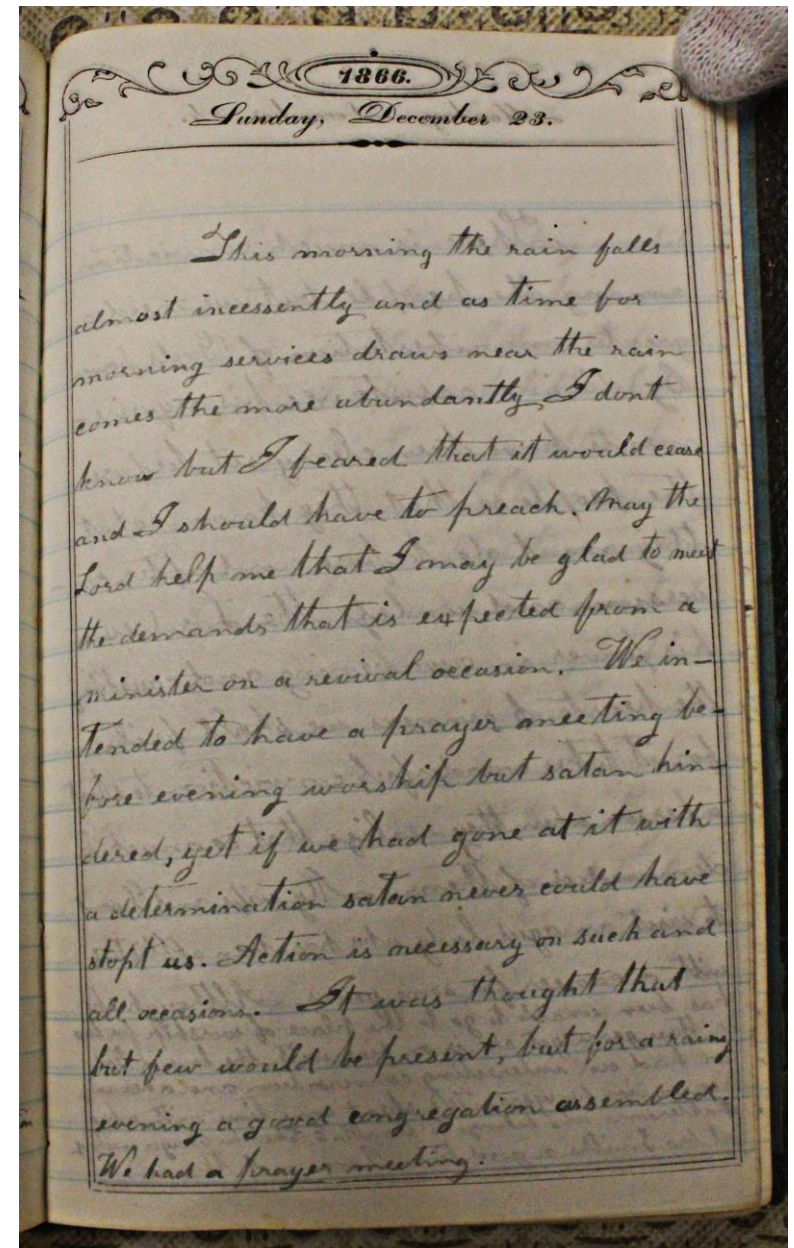 1866.
Sunday, December 23.
This morning the rain falls
almost incessently and as time for
morning services draws near the rain
comes the more abundantly, I dont
know but I feared that it would cease
and I should have to preach. May the
Lord help me that I may be glad to meet
the demands that is expected from a
minister on a revival occasion. We in-
tended to have a prayer meeting be-
fore evening worship but satan hin-
dered, yet if we had gone at it with
a determination satan never could have
stopt us. Action is necessary on such and
all occasions. It was thought that
but few would be present, but for a rainy
evening a good congregation assembled.
We had a prayer meeting.